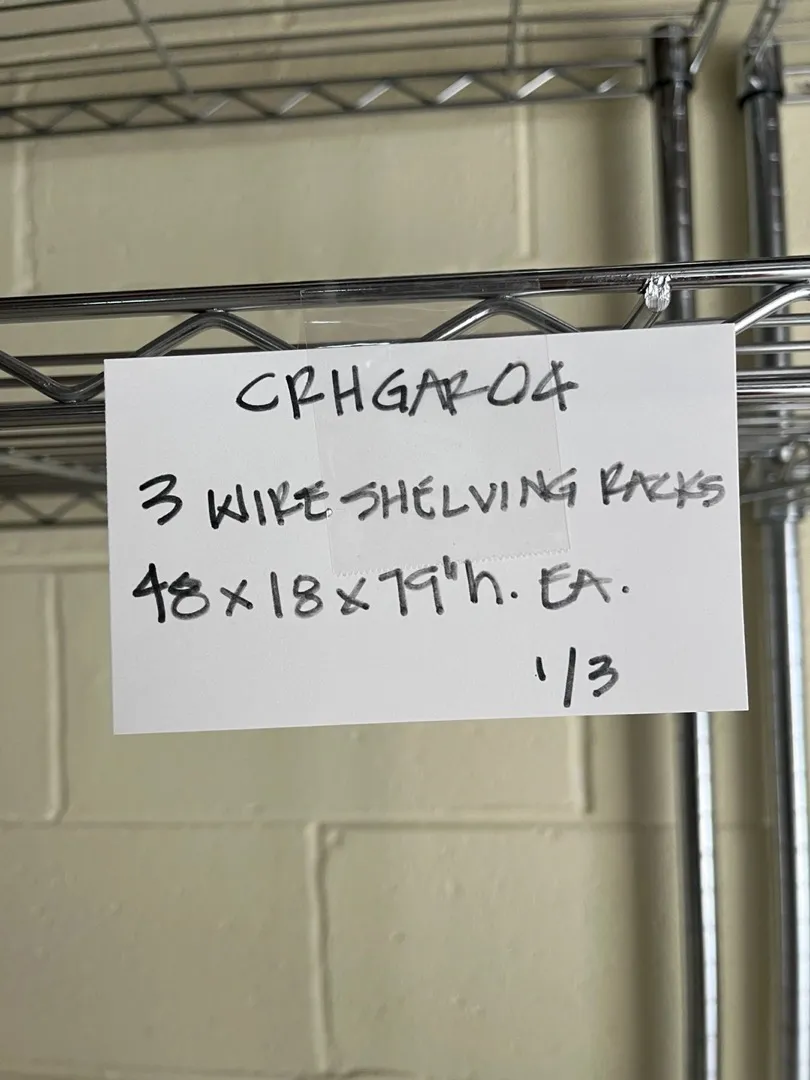 CRHGAR04
3 WIRE SHELVING RACKS
48 x 18 x 79"h. EA.
1/3